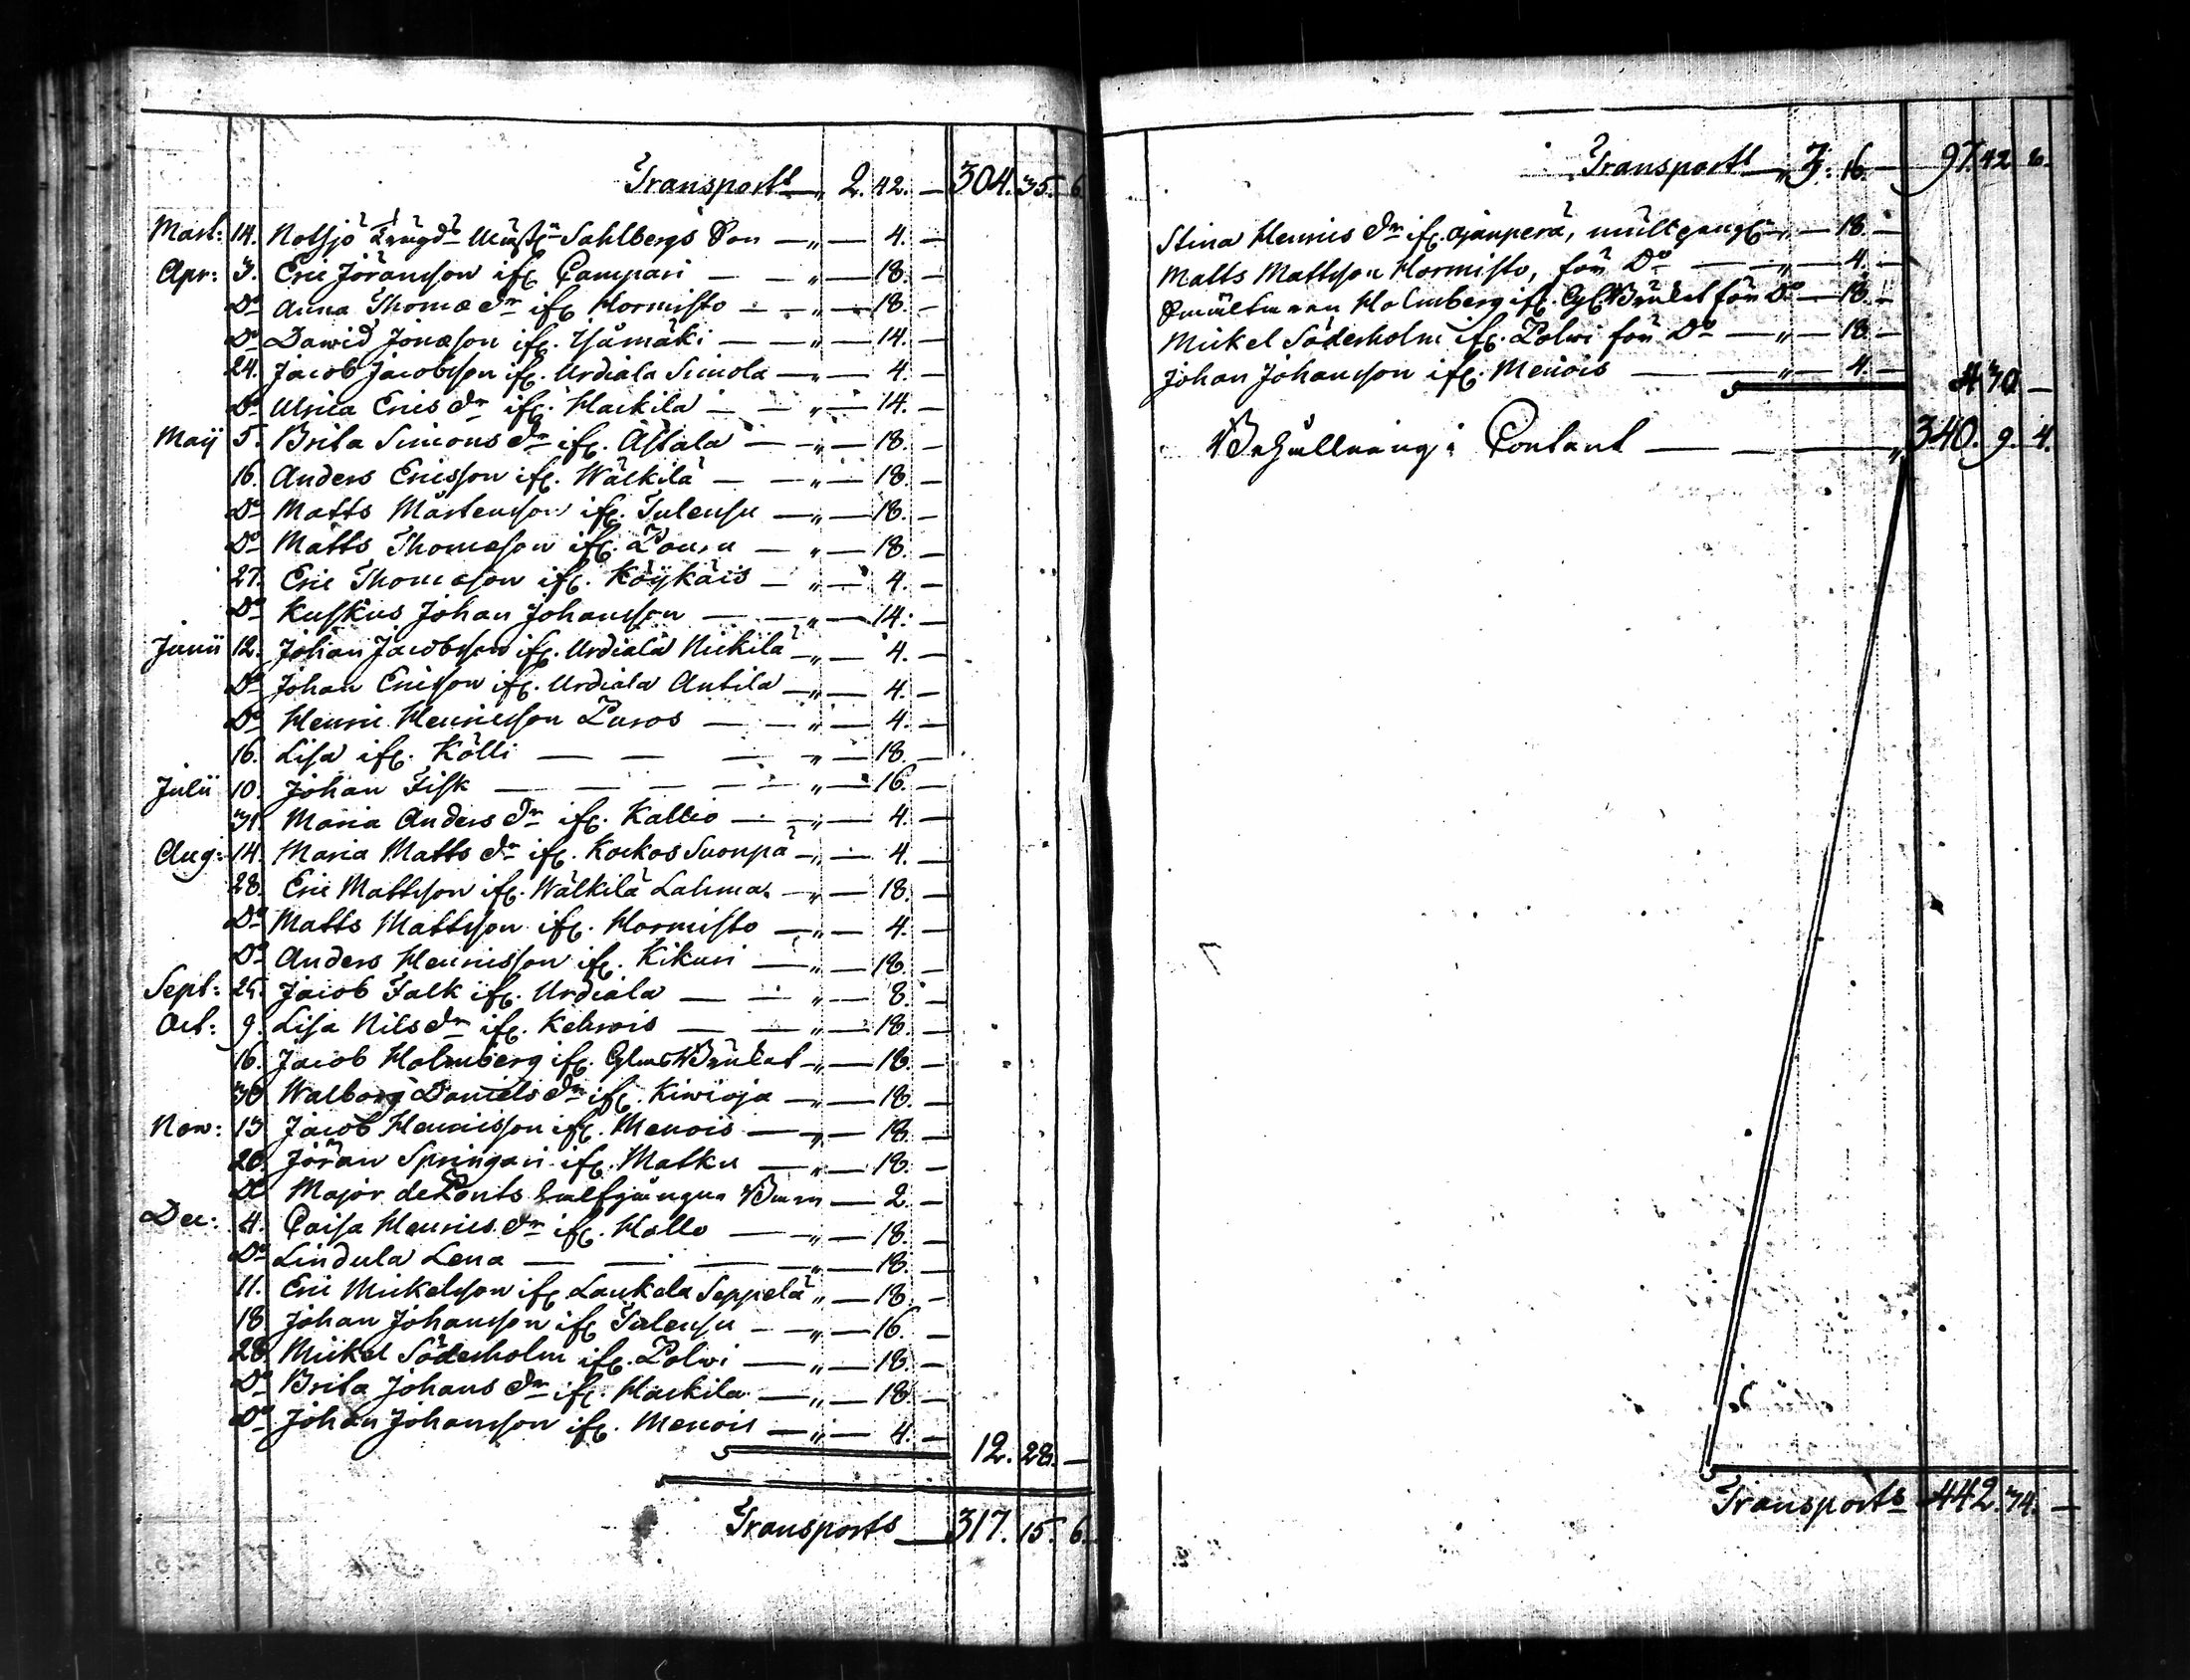 Transport „ 2. 42. — 304. 35. 6.
Mart: 14. Notsjö Sahlbergs Son — „ — 4. —
Apr: 3. Eric Jöransson ifr. Campari — „ — 18. —
Do Anna Thomædr ifr. Hormisto — „ — 18. —
Do Dawid Jonæson ifr. — „ — 14. —
24. Jacob Jacobsson ifr. Urdiala Simola — „ — 4. —
Do Ulrica Ericsdr ifr. Hackila — „ — 14. —
Maij 5. Brita Simonsdr ifr. Åstala — „ — 18. —
16. Anders Ericsson ifr. Wälkilä — „ — 18. —
Do Matts Mårtensson ifr. Tulensu — „ — 18. —
Do Matts Thomæson ifr. — „ — 18. —
27. Eric Thomæson ifr. Köijkäis — „ — 4. —
Do Kuskus Johan Johansson — „ — 14. —
Junii 12. Johan Jacobsson ifr. Urdiala Nickilä — „ — 4. —
Do Johan Ericsson ifr. Urdiala Antila — „ — 4. —
Do Henric Henricsson Puros — „ — 4. —
16. Lisa ifr. Kölli — „ — 18. —
Julii 10. Johan Fisk — „ — 16. —
31. Maria Andersdr ifr. Kallio — „ — 4. —
Aug: 14. Maria Mattsdr ifr. Kockos Suonpä — „ — 4. —
28. Eric Mattsson ifr. Wälkilä Lahmas — „ — 18. —
Do Matts Mattsson ifr. Hormisto — „ — 4. —
Do Anders Henricsson ifr. Kikuri — „ — 18. —
Sept: 25. Jacob Falk ifr. Urdiala — „ — 8. —
Oct: 9. Lisa Nilsdr ifr. Kehrois — „ — 18. —
16. Jacob Holmberg ifr. Glas Bruket — „ — 18. —
30. Walborg Danielsdr ifr. Kiwioja — „ — 18. —
Nov: 13. Jacob Henricsson ifr. Menois — „ — 18. —
20. Jöran Springari ifr. Matku — „ — 18. —
Do Major de Ponts Barn — 2. —
Dec: 4. Caisa Henricsdr ifr. Hallo — „ — 18. —
Do Lindula Lena — „ — 18. —
11. Eric Mickelsson ifr. Laukela Seppelä „ — 18. —
18. Johan Johansson ifr. Tulensu — „ — 16. —
28. Mickel Söderholm ifr. Polwi — „ — 18. —
Do Brita Johansdr ifr. Hackila — „ — 18. —
Do Johan Johansson ifr. Menois — „ — 4. — 12. 28. —
Transports — 317. 15. 6.
Transport „ 3. 16. — 97. 42. 8.
Stina Henricsdr ifr. Ajänperä, — „ — 18. —
Matts Mattsson Hormisto, för Do — „ — 4. —
Holmberg ifr. Gl. Bruket för Do — 18. —
Mickel Söderholm ifr. Polwi för Do — „ — 18. —
Johan Johansson ifr. Menois — „ — 4. — 4. 30. —
Behållning i Contant — „ 340. 9. 4.
Transports 442. 34. —